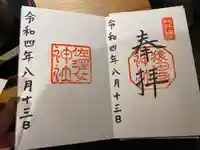 奉拝
令和四年八月十三日
佐瑠女
神社
令和四年八月十三日